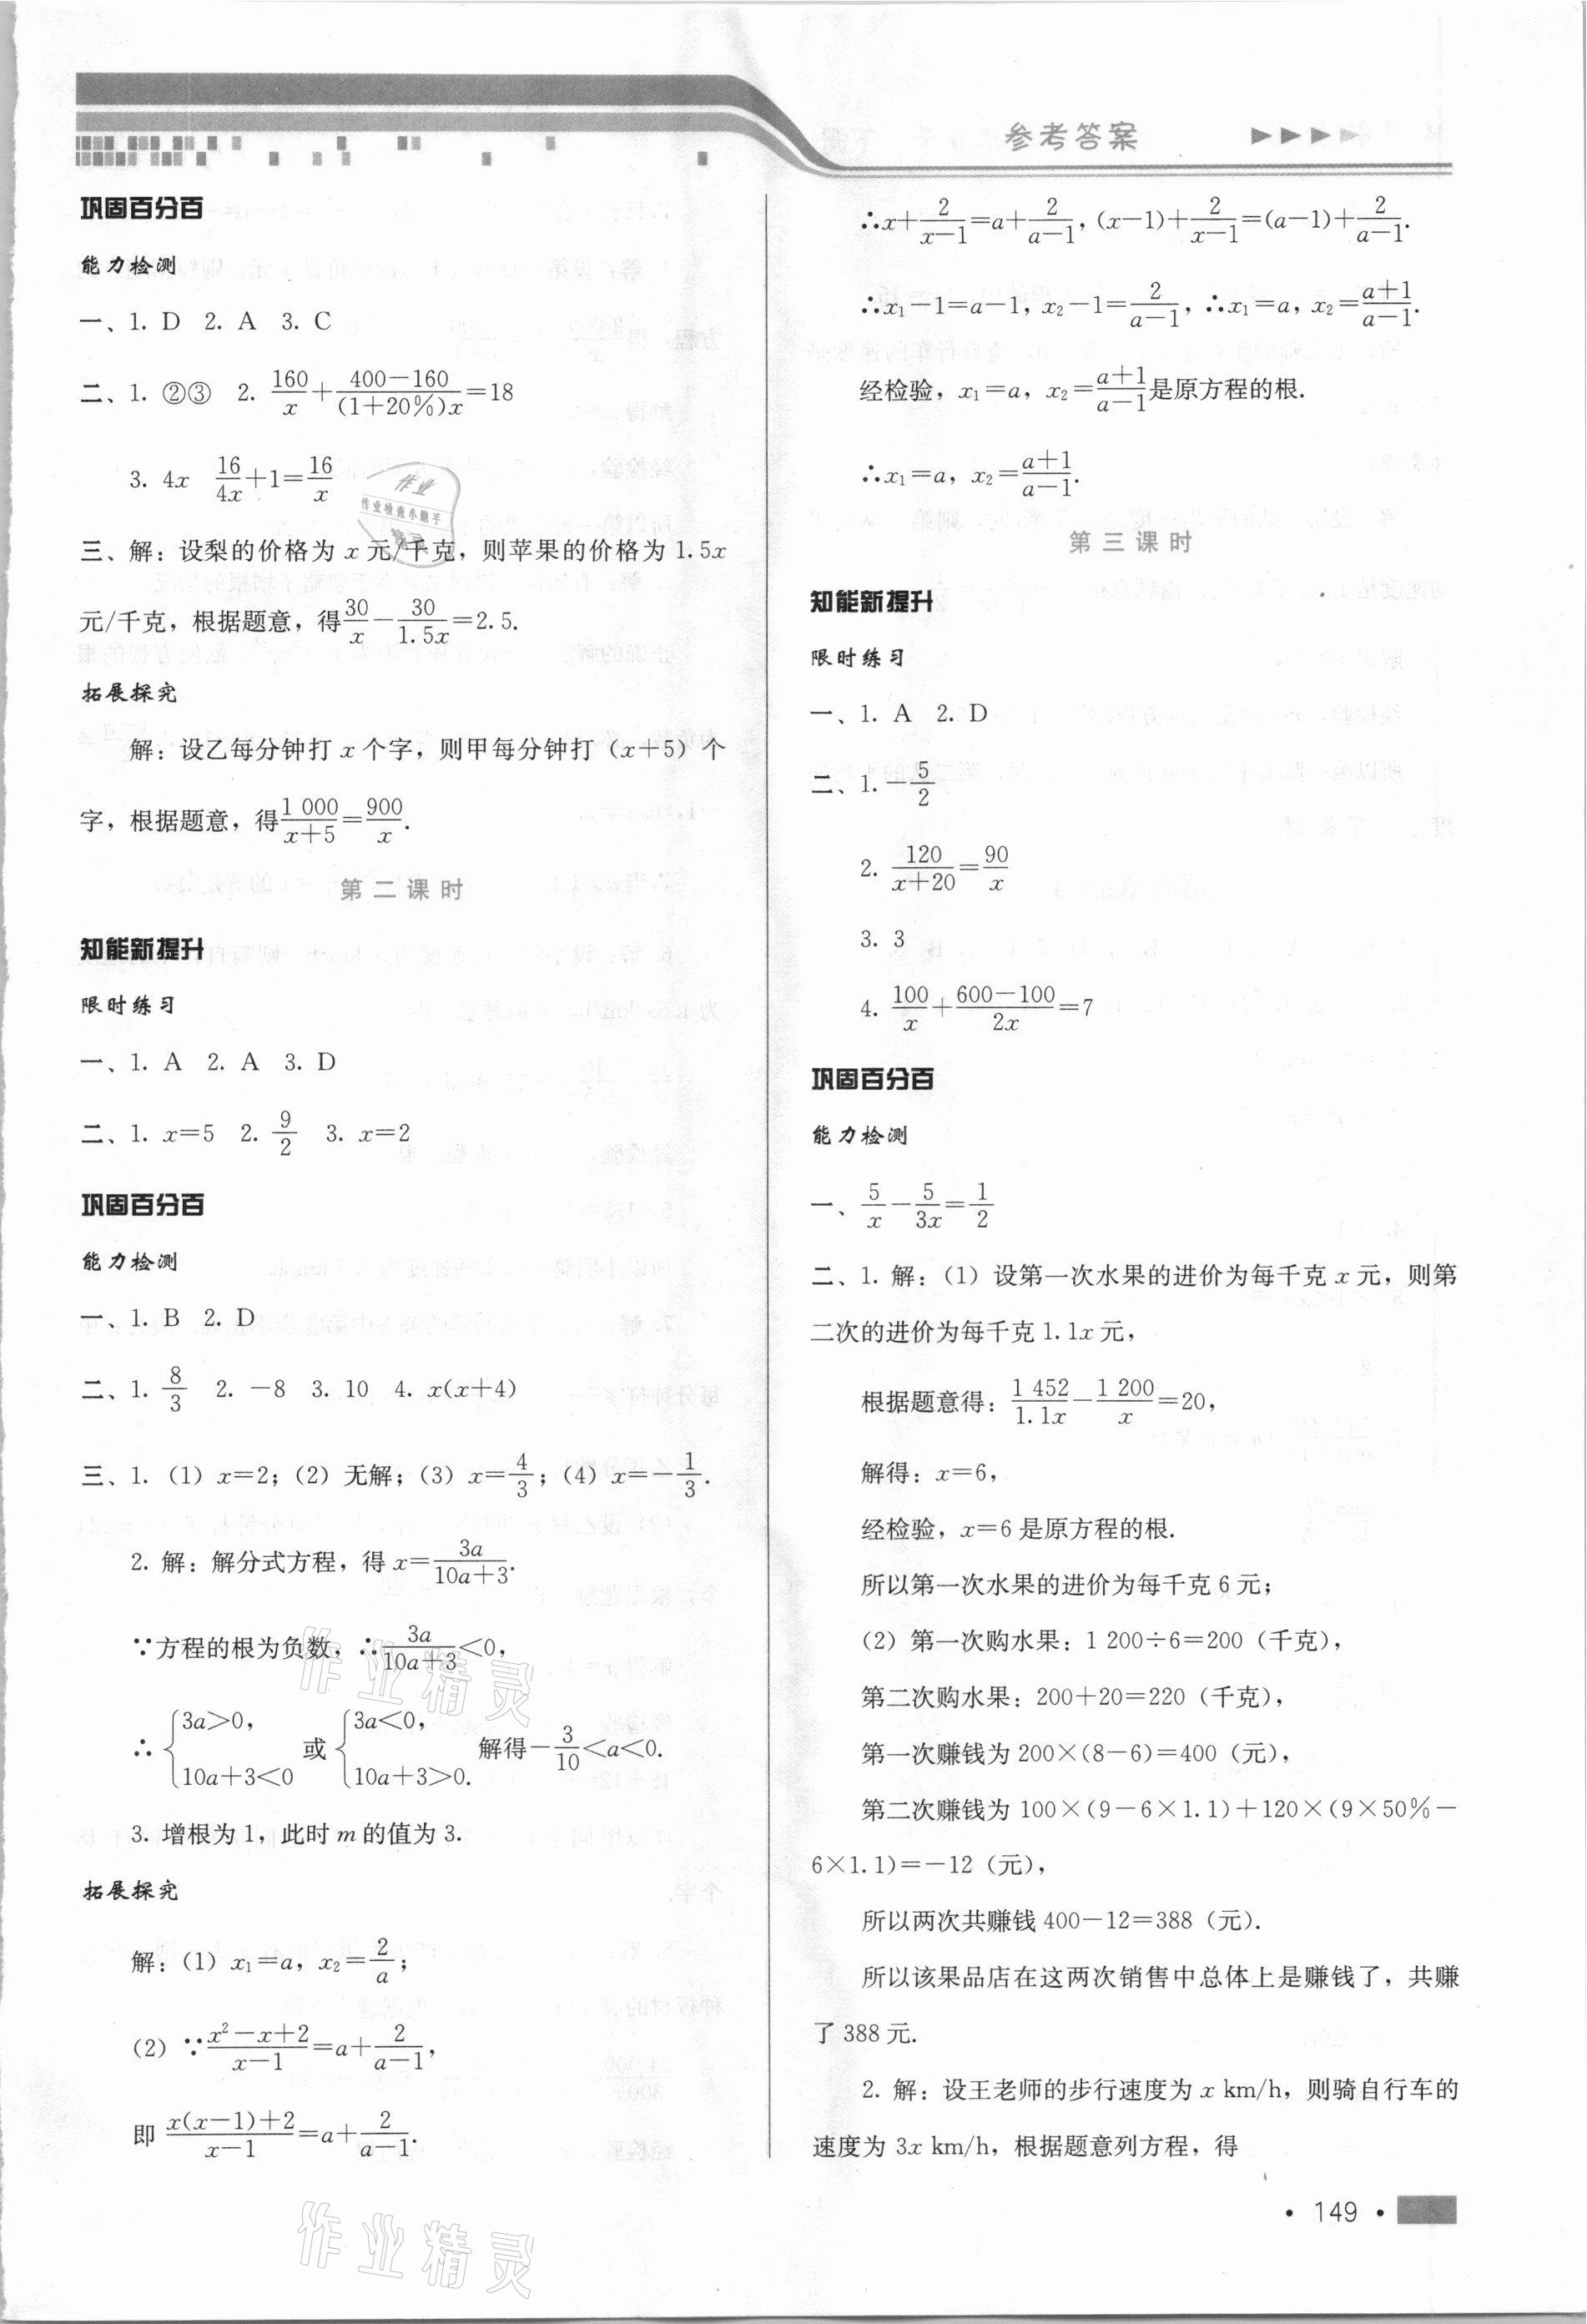 参考答案
巩固百分百
能力检测
一、1. D 2. A 3. C
二、1. ②③ 2. 160/x+(400-160)/((1+20%)x)=18
3. 4x 16/4x+1=16/x
三、解：设梨的价格为 x 元/千克，则苹果的价格为 1.5x
元/千克，根据题意，得30/x-30/1.5x=2.5.
拓展探究
解：设乙每分钟打 x 个字，则甲每分钟打（x+5）个
字，根据题意，得1 000/(x+5)=900/x.
第二课时
知能新提升
限时练习
一、1. A 2. A 3. D
二、1. x=5 2. 9/2 3. x=2
巩固百分百
能力检测
一、1. B 2. D
二、1. 8/3 2. -8 3. 10 4. x(x+4)
三、1.（1）x=2；（2）无解；（3）x=4/3；（4）x=-1/3.
2. 解：解分式方程，得 x=3a/(10a+3).
∵方程的根为负数，∴3a/(10a+3)<0，
∴{3a>0, 10a+3<0 或 {3a<0, 10a+3>0. 解得-3/10<a<0.
3. 增根为 1，此时 m 的值为 3.
拓展探究
解：（1）x₁=a，x₂=2/a；
（2）∵(x²-x+2)/(x-1)=a+2/(a-1)，
即 (x(x-1)+2)/(x-1)=a+2/(a-1).
∴x+2/(x-1)=a+2/(a-1)，(x-1)+2/(x-1)=(a-1)+2/(a-1).
∴x₁-1=a-1，x₂-1=2/(a-1)，∴x₁=a，x₂=(a+1)/(a-1).
经检验，x₁=a，x₂=(a+1)/(a-1)是原方程的根.
∴x₁=a，x₂=(a+1)/(a-1).
第三课时
知能新提升
限时练习
一、1. A 2. D
二、1. -5/2
2. 120/(x+20)=90/x
3. 3
4. 100/x+(600-100)/2x=7
巩固百分百
能力检测
一、5/x-5/3x=1/2
二、1. 解：（1）设第一次水果的进价为每千克 x 元，则第
二次的进价为每千克 1.1x 元，
根据题意得：1 452/1.1x-1 200/x=20，
解得：x=6，
经检验，x=6 是原方程的根.
所以第一次水果的进价为每千克 6 元；
（2）第一次购水果：1 200÷6=200（千克），
第二次购水果：200+20=220（千克），
第一次赚钱为 200×(8-6)=400（元），
第二次赚钱为 100×(9-6×1.1)+120×(9×50%-
6×1.1)=-12（元），
所以两次共赚钱 400-12=388（元）.
所以该果品店在这两次销售中总体上是赚钱了，共赚
了 388 元.
2. 解：设王老师的步行速度为 x km/h，则骑自行车的
速度为 3x km/h，根据题意列方程，得
• 149 •
作业
作业检查小助手
作业精灵
作业精灵